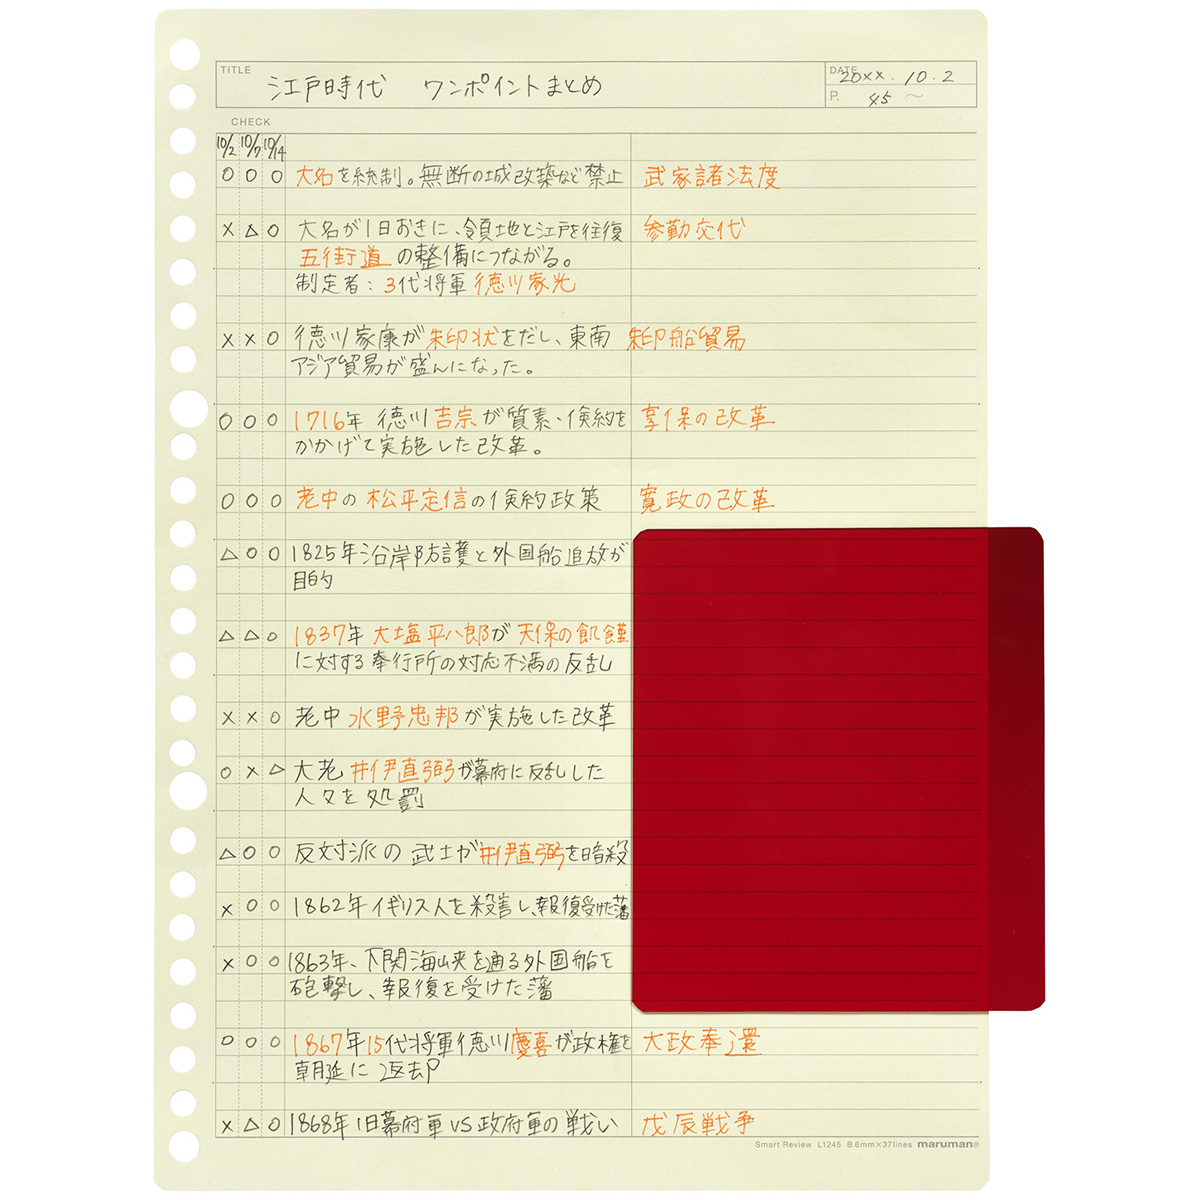 TITLE 江戸時代 ワンポイントまとめ DATE 20xx. 10. 2
P. 45 ~
CHECK
10/2 10/7 10/14
○ ○ ○ 大名を統制。無断の城改築など禁止 武家諸法度
× △ ○ 大名が1日おきに、領地と江戸を往復 参勤交代
五街道 の整備につながる。
制定者: 3代将軍 徳川家光
× × ○ 徳川家康が朱印状をだし、東南 朱印船貿易
アジア貿易が盛んになった。
○ ○ ○ 1716年 徳川吉宗が質素・倹約を 享保の改革
かかげて実施した改革。
○ ○ ○ 老中の松平定信の倹約政策 寛政の改革
△ ○ ○ 1825年沿岸防護と外国船追放が
目的
△ △ ○ 1837年 大塩平八郎が 天保の飢饉
に対する奉行所の対応不満の反乱
× × ○ 老中 水野忠邦が実施した改革
○ × △ 大老 井伊直弼が幕府に反乱した
人々を処罰
△ ○ ○ 反対派の武士が井伊直弼を暗殺
× ○ ○ 1862年イギリス人を殺害し、報復受けた藩
× ○ ○ 1863年、下関海峡を通る外国船を
砲撃し、報復を受けた藩
○ ○ ○ 1867年15代将軍徳川慶喜が政権を 大政奉還
朝廷に返却
× △ ○ 1868年旧幕府軍VS政府軍の戦い 戊辰戦争
Smart Review L1245 B 6mm×37lines maruman®